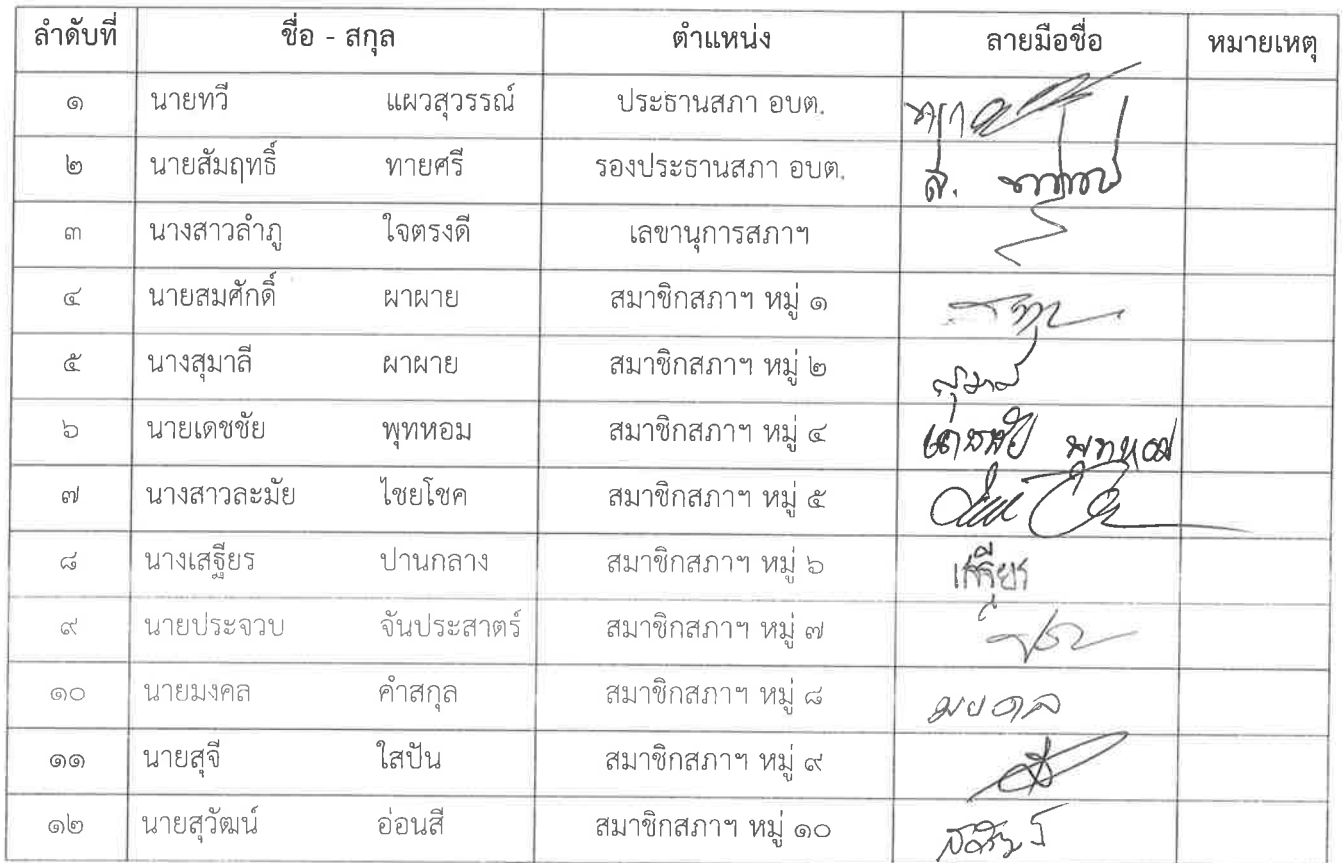 ลำดับที่ ชื่อ - สกุล ตำแหน่ง ลายมือชื่อ หมายเหตุ
๑ นายทวี แผวสุวรรณ์ ประธานสภา อบต.
๒ นายสัมฤทธิ์ ทายศรี รองประธานสภา อบต. ส.
๓ นางสาวลำภู ใจตรงดี เลขานุการสภาฯ
๔ นายสมศักดิ์ ผาผาย สมาชิกสภาฯ หมู่ ๑
๕ นางสุมาลี ผาผาย สมาชิกสภาฯ หมู่ ๒ สุมาลี
๖ นายเดชชัย พุทหอม สมาชิกสภาฯ หมู่ ๔ เดชชัย พุทหอม
๗ นางสาวละมัย ไชยโชค สมาชิกสภาฯ หมู่ ๕
๘ นางเสฐียร ปานกลาง สมาชิกสภาฯ หมู่ ๖ เสฐียร
๙ นายประจวบ จันประสาตร์ สมาชิกสภาฯ หมู่ ๗
๑๐ นายมงคล คำสกุล สมาชิกสภาฯ หมู่ ๘ มงคล
๑๑ นายสุจี ใสปัน สมาชิกสภาฯ หมู่ ๙
๑๒ นายสุวัฒน์ อ่อนสี สมาชิกสภาฯ หมู่ ๑๐